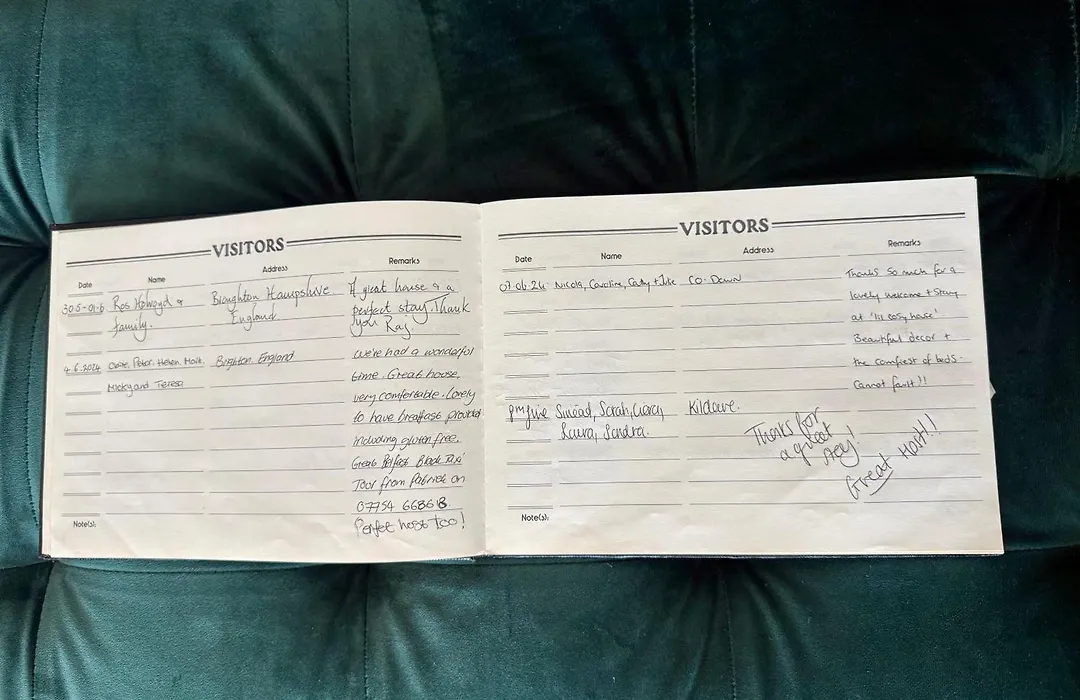 VISITORS
Date Name Address Remarks
30-5-01-6 Ros & Broughton Hampshire A great house & a
family. England perfect stay. Thank
you Raj.
4.6.2024 Peter, Helen, Matt, Brighton, England We've had a wonderful
Micky and Teresa time. Great house,
very comfortable. Lovely
to have breakfast provided
including gluten free.
Great Belfast Black Taxi
Tour from Patrick on
07754 668618.
Perfect host too!
Note(s):
VISITORS
Date Name Address Remarks
07.06.24 Nicola, Caroline, Cathy + Julie CO. DOWN Thanks so much for a
lovely welcome + stay
at 'lil cosy house'
Beautiful decor +
the comfiest of beds -
Cannot fault!!
9th June Sinéad, Sarah, Ciara, Kildare.
Laura, Sandra.
Thanks for
a great
stay!
Great Host!!
Note(s):